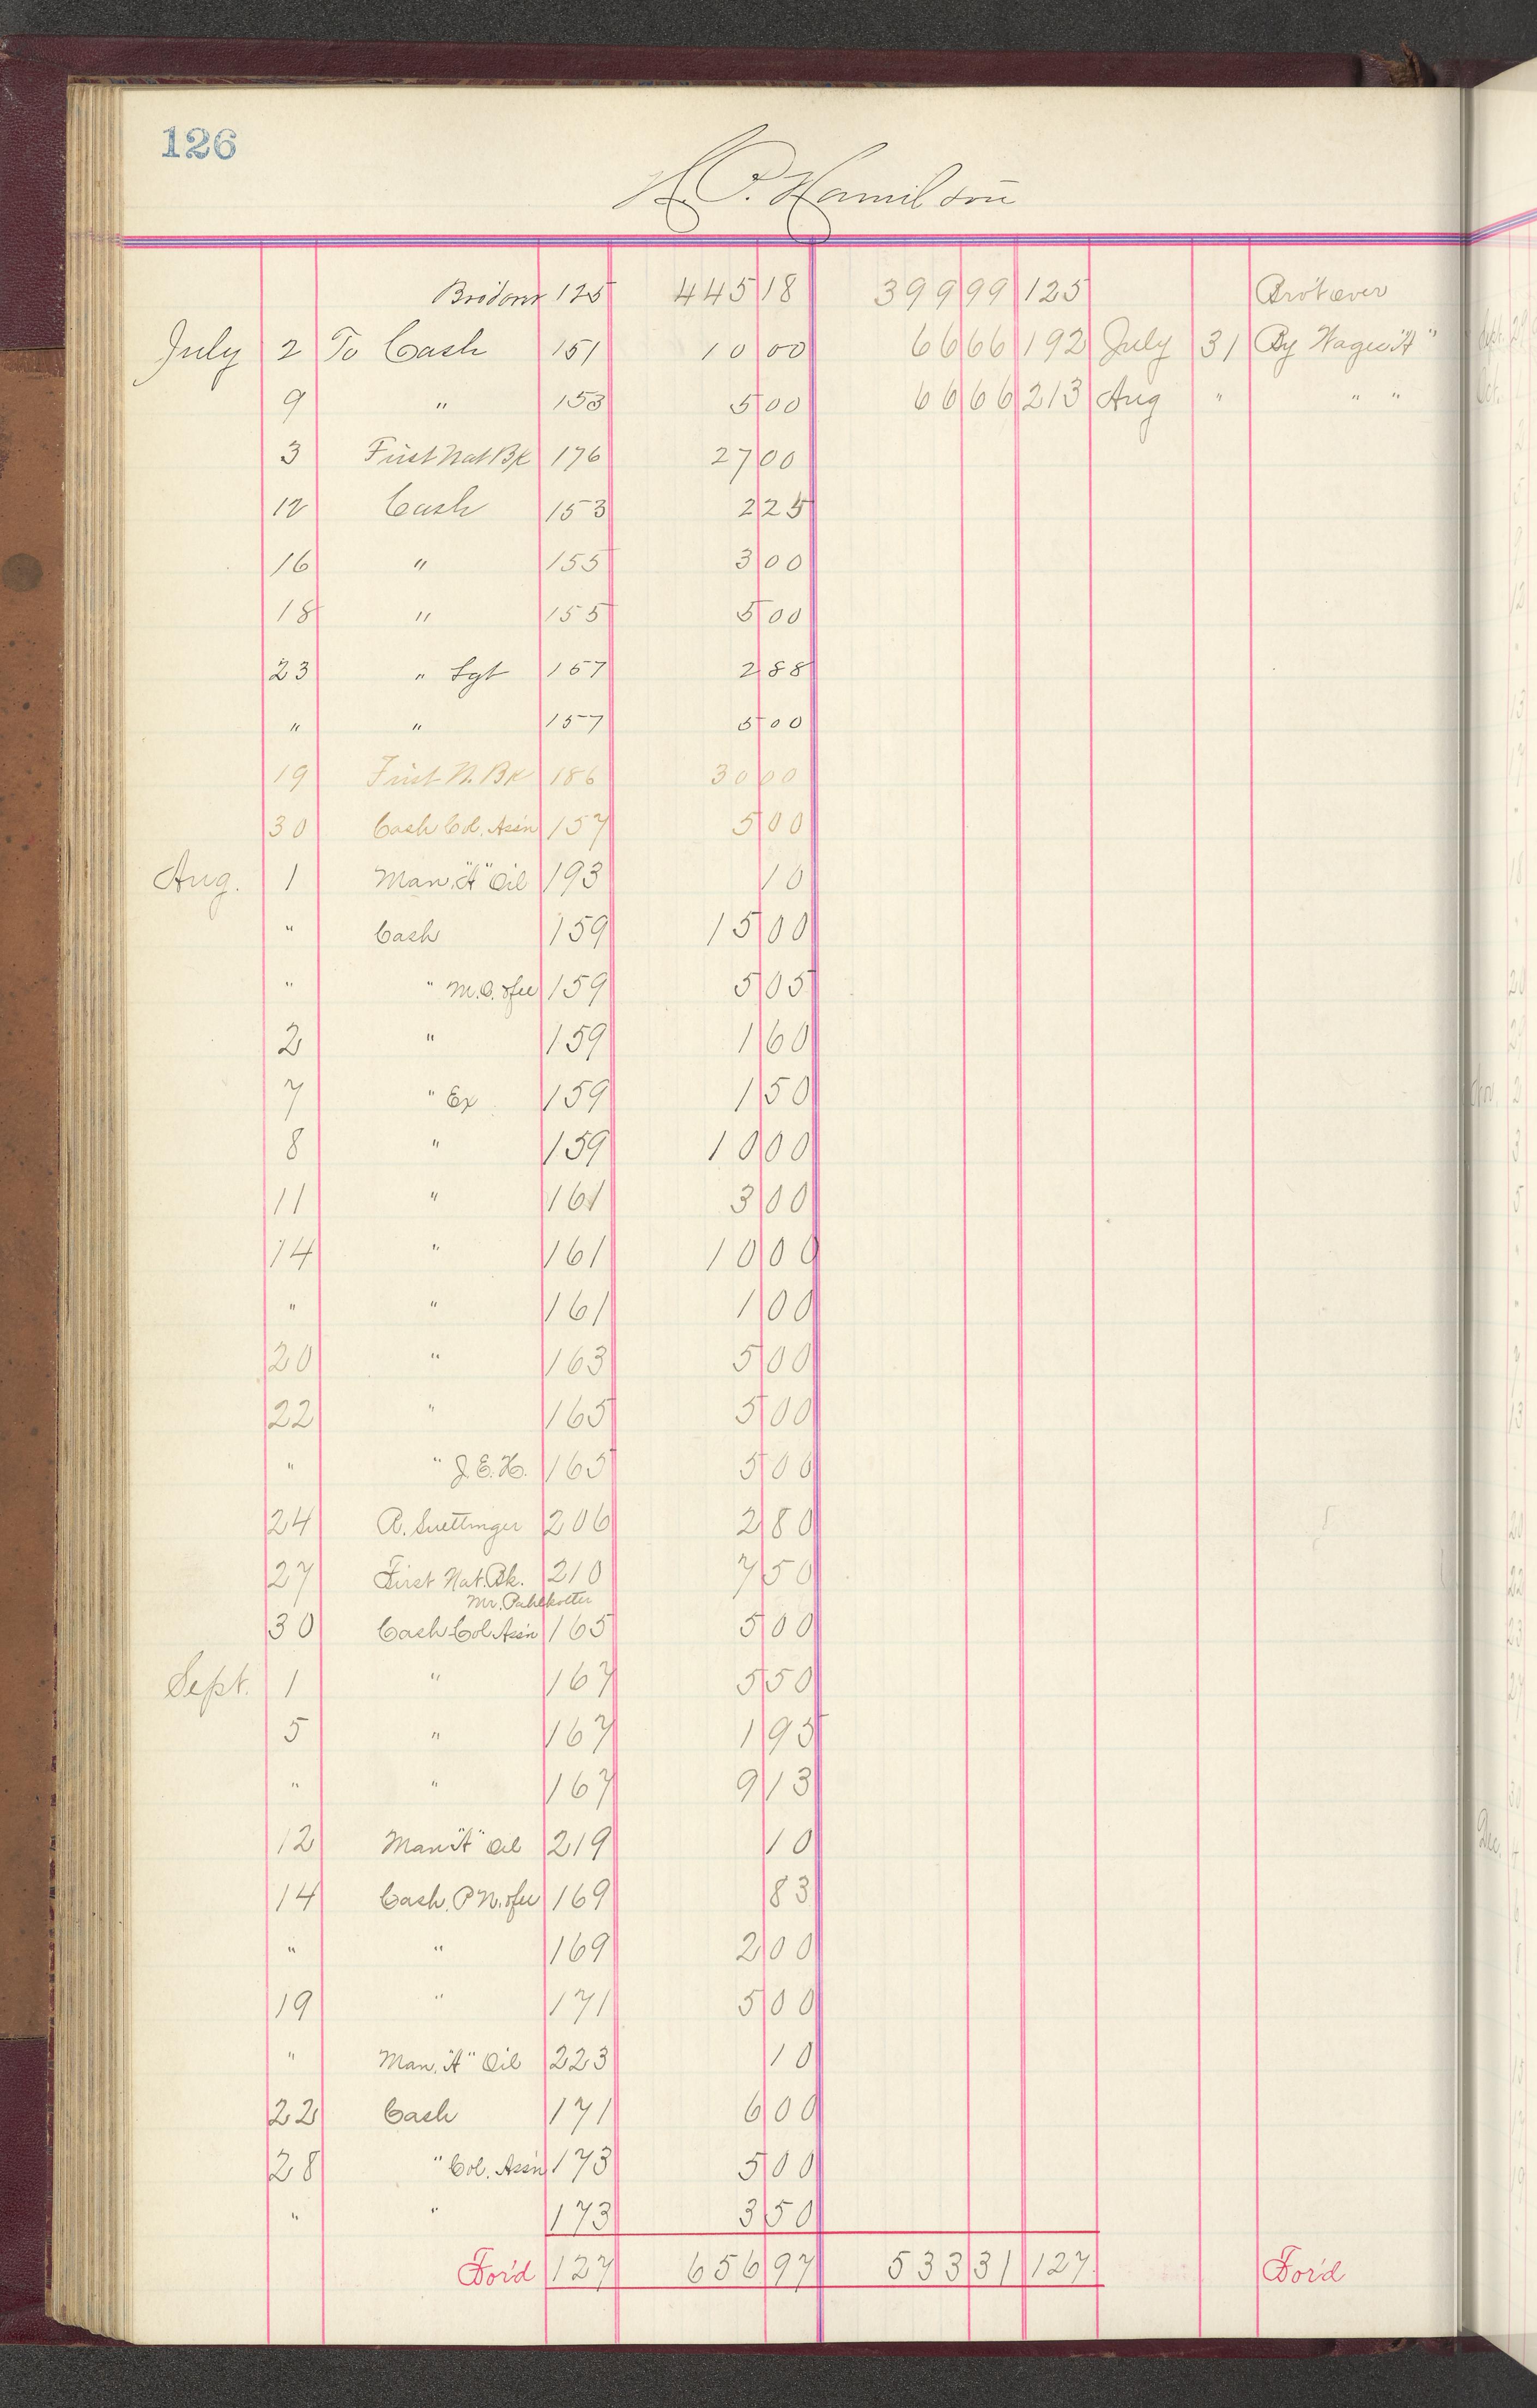 126
H. P. Hamilton
125 445 18 399 99 125 Brot over
July 2 To Cash 151 10 00 66 66 192 July 31 By Wages "A"
9 " 153 5 00 66 66 213 Aug " " "
3 First Nat Bk 176 27 00
12 Cash 153 2 25
16 " 155 3 00
18 " 155 5 00
23 " Sgt 157 2 88
" " 157 5 00
19 First N. Bk 186 30 00
30 Cash Col. Assn 157 5 00
Aug. 1 Man. "A" Oil 193 10
" Cash 159 15 00
" " M.O. & fee 159 5 05
2 " 159 1 60
7 " Ex 159 1 50
8 " 159 10 00
11 " 161 3 00
14 " 161 10 00
" " 161 1 00
20 " 163 5 00
22 " 165 5 00
" " J. E. H. 165 5 00
24 R. Suettinger 206 2 80
27 First Nat. Bk. 210 7 50
Mr. Pahlkotter
30 Cash Col Assn 165 5 00
Sept. 1 " 167 5 50
5 " 167 1 95
" " 167 9 13
12 Man "A" Oil 219 10
14 Cash. P N. & fee 169 83
" " 169 2 00
19 " 171 5 00
" Man. "A" Oil 223 10
22 Cash 171 6 00
28 " Col. Assn 173 5 00
" " 173 3 50
For'd 127 656 97 533 31 127 For'd